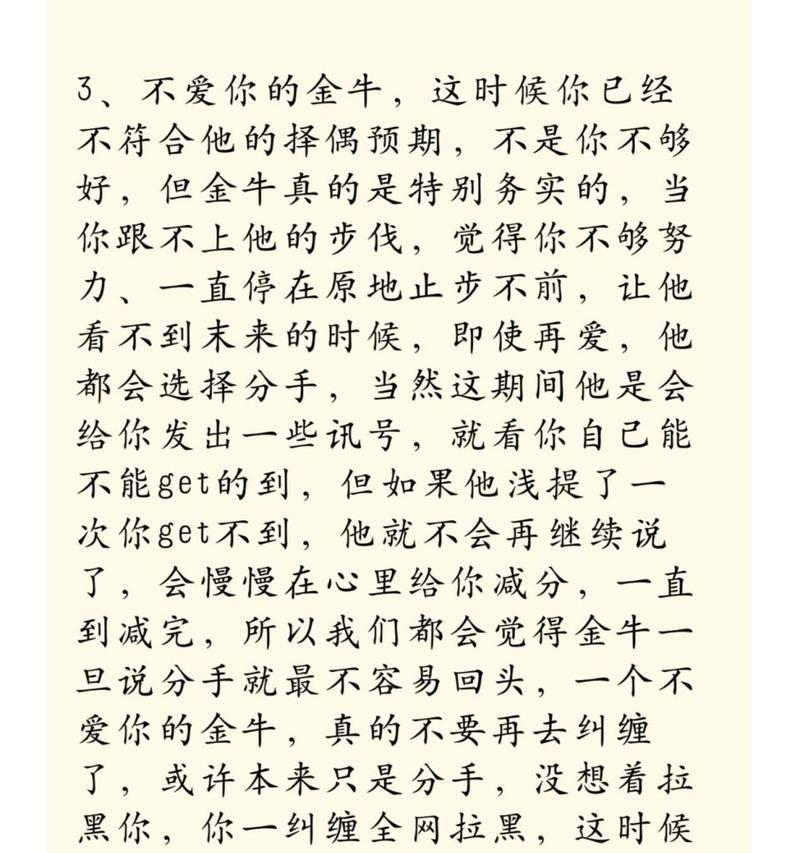 3、不爱你的金牛，这时候你已经
不符合他的择偶预期，不是你不够
好，但金牛真的是特别务实的，当
你跟不上他的步伐，觉得你不够努
力、一直停在原地止步不前，让他
看不到末来的时候，即使再爱，他
都会选择分手，当然这期间他是会
给你发出一些讯号，就看你自己能
不能get的到，但如果他浅提了一
次你get不到，他就不会再继续说
了，会慢慢在心里给你减分，一直
到减完，所以我们都会觉得金牛一
旦说分手就最不容易回头，一个不
爱你的金牛，真的不要再去纠缠
了，或许本来只是分手，没想着拉
黑你，你一纠缠全网拉黑，这时候